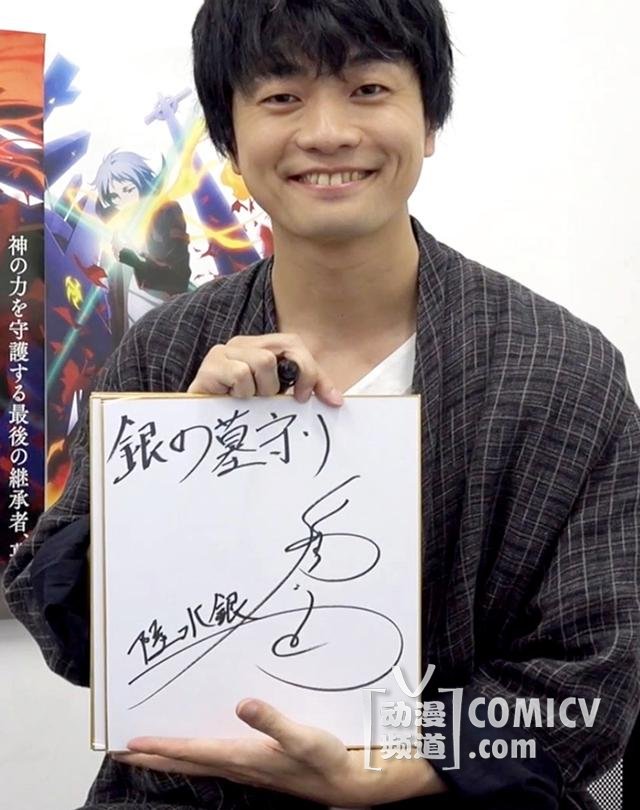 神の力を守護する最後の継承者、
銀の墓守り
陵水銀
动漫
频道
COMICV
.com